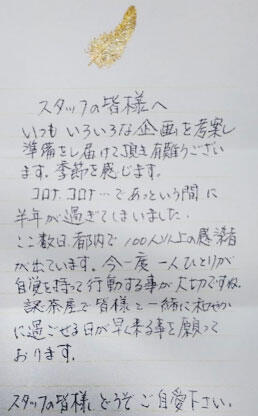 スタッフの皆様へ
いつもいろいろな企画を考案し
準備をし届けて頂き有難うござい
ます。季節を感じます。
コロナ、コロナ…であっという間に
半年が過ぎてしまいました.
ここ数日、都内で100人以上の感染者
が出ています。今一度一人ひとりが
自覚を持って行動する事が大切ですね.
談茶屋で皆様と一緒に和やか
に過ごせる日が早く来る事を願って
おります。
スタッフの皆様、どうぞご自愛下さい.